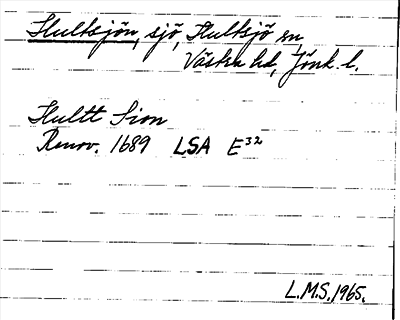 Hultsjön, sjö, Hultsjö sn,
Västra hd, Jönk. l.
Hultt Sion
Renov. 1689 LSA E³²
L.M.S. 1965.